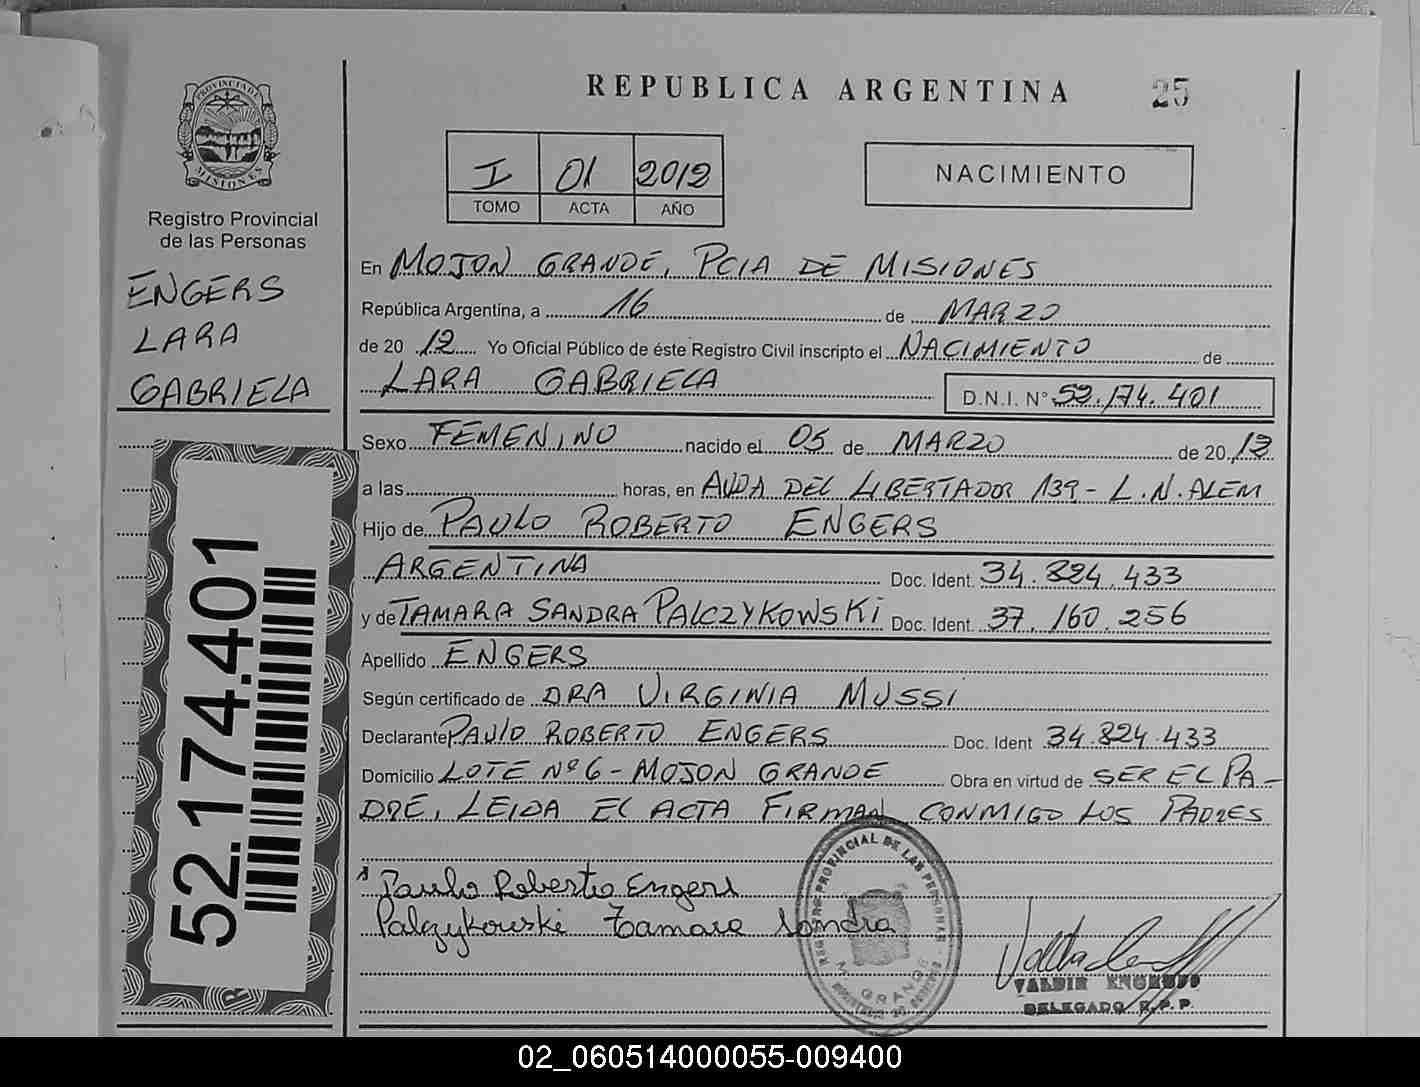 REPUBLICA ARGENTINA 25
PROVINCIA DE
MISIONES
Registro Provincial
de las Personas
ENGERS
LARA
GABRIELA
52.174.401
I 01 2012
TOMO ACTA AÑO
NACIMIENTO
En MOJON GRANDE, PCIA DE MISIONES
República Argentina, a 16 de MARZO
de 20 12 Yo Oficial Público de éste Registro Civil inscripto el NACIMIENTO de
LARA GABRIELA D.N.I. N° 52.174.401
Sexo FEMENINO nacido el 05 de MARZO de 20 12
a las horas, en AVDA DEL LIBERTADOR 139 - L.N. ALEM
Hijo de PAULO ROBERTO ENGERS
ARGENTINA Doc. Ident. 34.824.433
y de TAMARA SANDRA PALCZYKOWSKI Doc. Ident. 37.160.256
Apellido ENGERS
Según certificado de DRA VIRGINIA MUSSI
Declarante PAULO ROBERTO ENGERS Doc. Ident 34.824.433
Domicilio LOTE Nº 6 - MOJON GRANDE Obra en virtud de SER EL PA-
DRE, LEIDA EL ACTA FIRMAN CONMIGO LOS PADRES
Paulo Roberto Engers
Palczykowski Tamara Sandra
REGISTRO PROVINCIAL DE LAS PERSONAS
GRANDE
VALDIR
DELEGADO R.P.P.
02_060514000055-009400